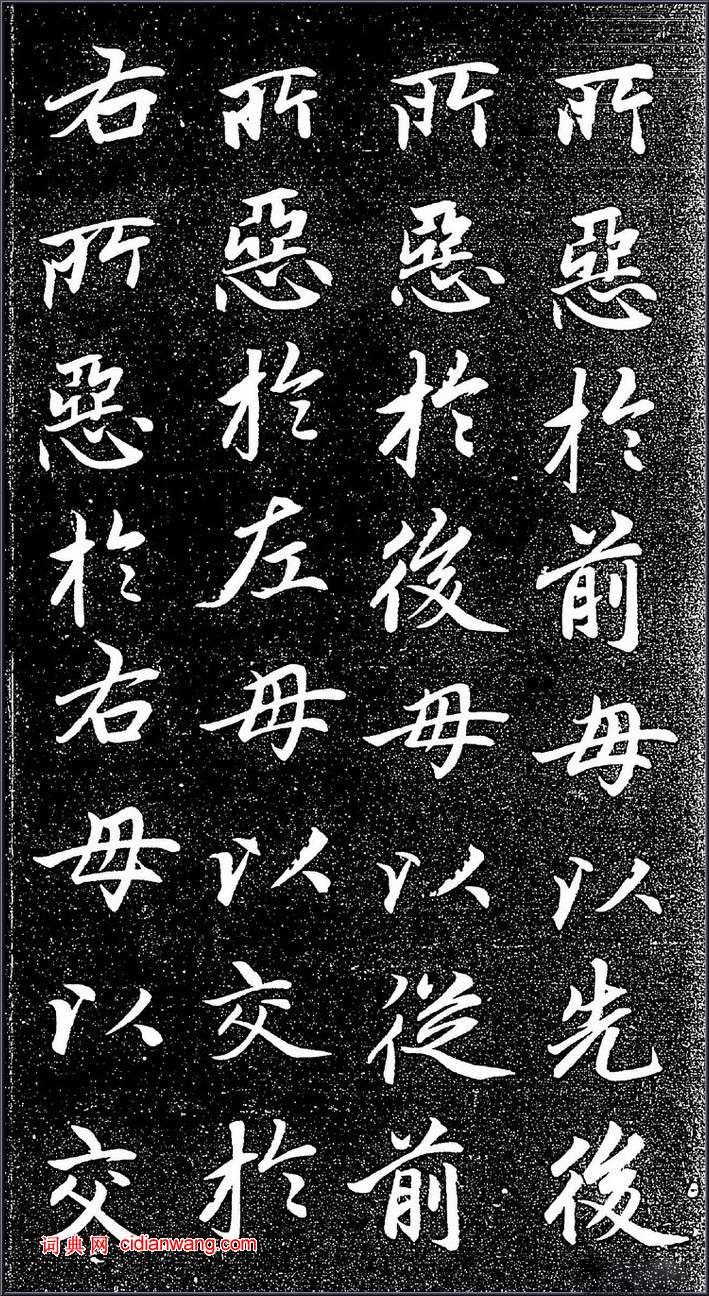 所惡於前毋以先後
所惡於後毋以從前
所惡於左毋以交於
右所惡於右毋以交
词典网 cidianwang.com